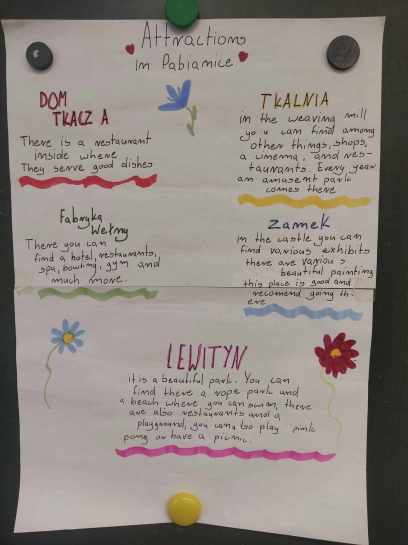 Attractions
In Pabianice
DOM
TKACZ A
There is a restaurant
inside where
They serve good dishes
TKALNIA
in the weaving mill
yo u can find among
other things, shops,
a cinema, and res-
taurants. Every year
an amusent park
comes there
Fabryka
Wełny
There you can
find a hotel, restaurants,
spa, bowling, gym and
much more.
Zamek
in the castle you can
find various exhibits
there are various
beautiful painting
this place is good and
recomend going th-
ere
LEWITYN
it is a beautiful park. You can
find there a rope park and
a beach where you can swim, there
are also restaurants and a
playground, you can also play pink
pong or have a picnic.